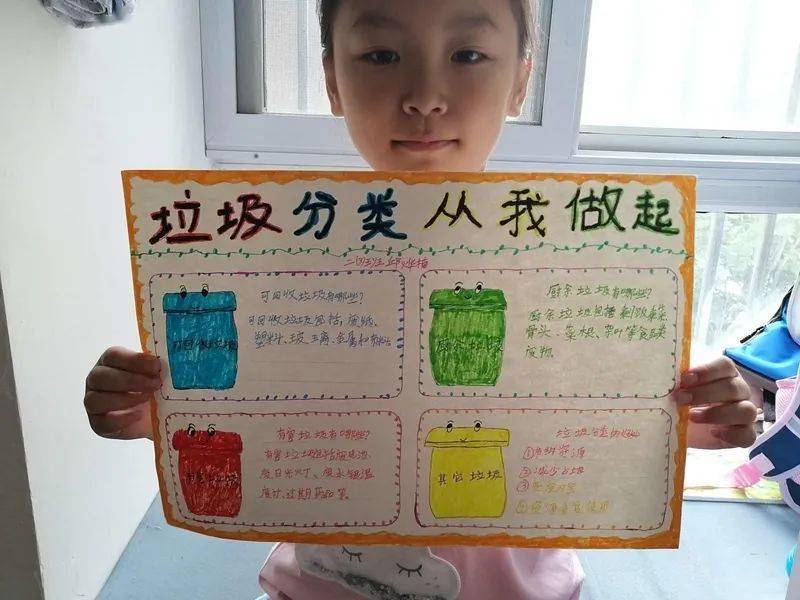 垃圾分类从我做起
二(3)班
可回收垃圾
可回收垃圾有哪些?
可回收垃圾包括,废纸、
塑料、玻璃、金属和布料
厨余垃圾
厨余垃圾有哪些?
厨余垃圾包括剩饭剩菜
骨头、菜根、菜叶等食品类
废物。
有害垃圾
有害垃圾有哪些?
有害垃圾包括废电池、
废日光灯、废水银温
度计、过期药品等
其它垃圾
垃圾分类的
①节约资源
②减少占地
③
④